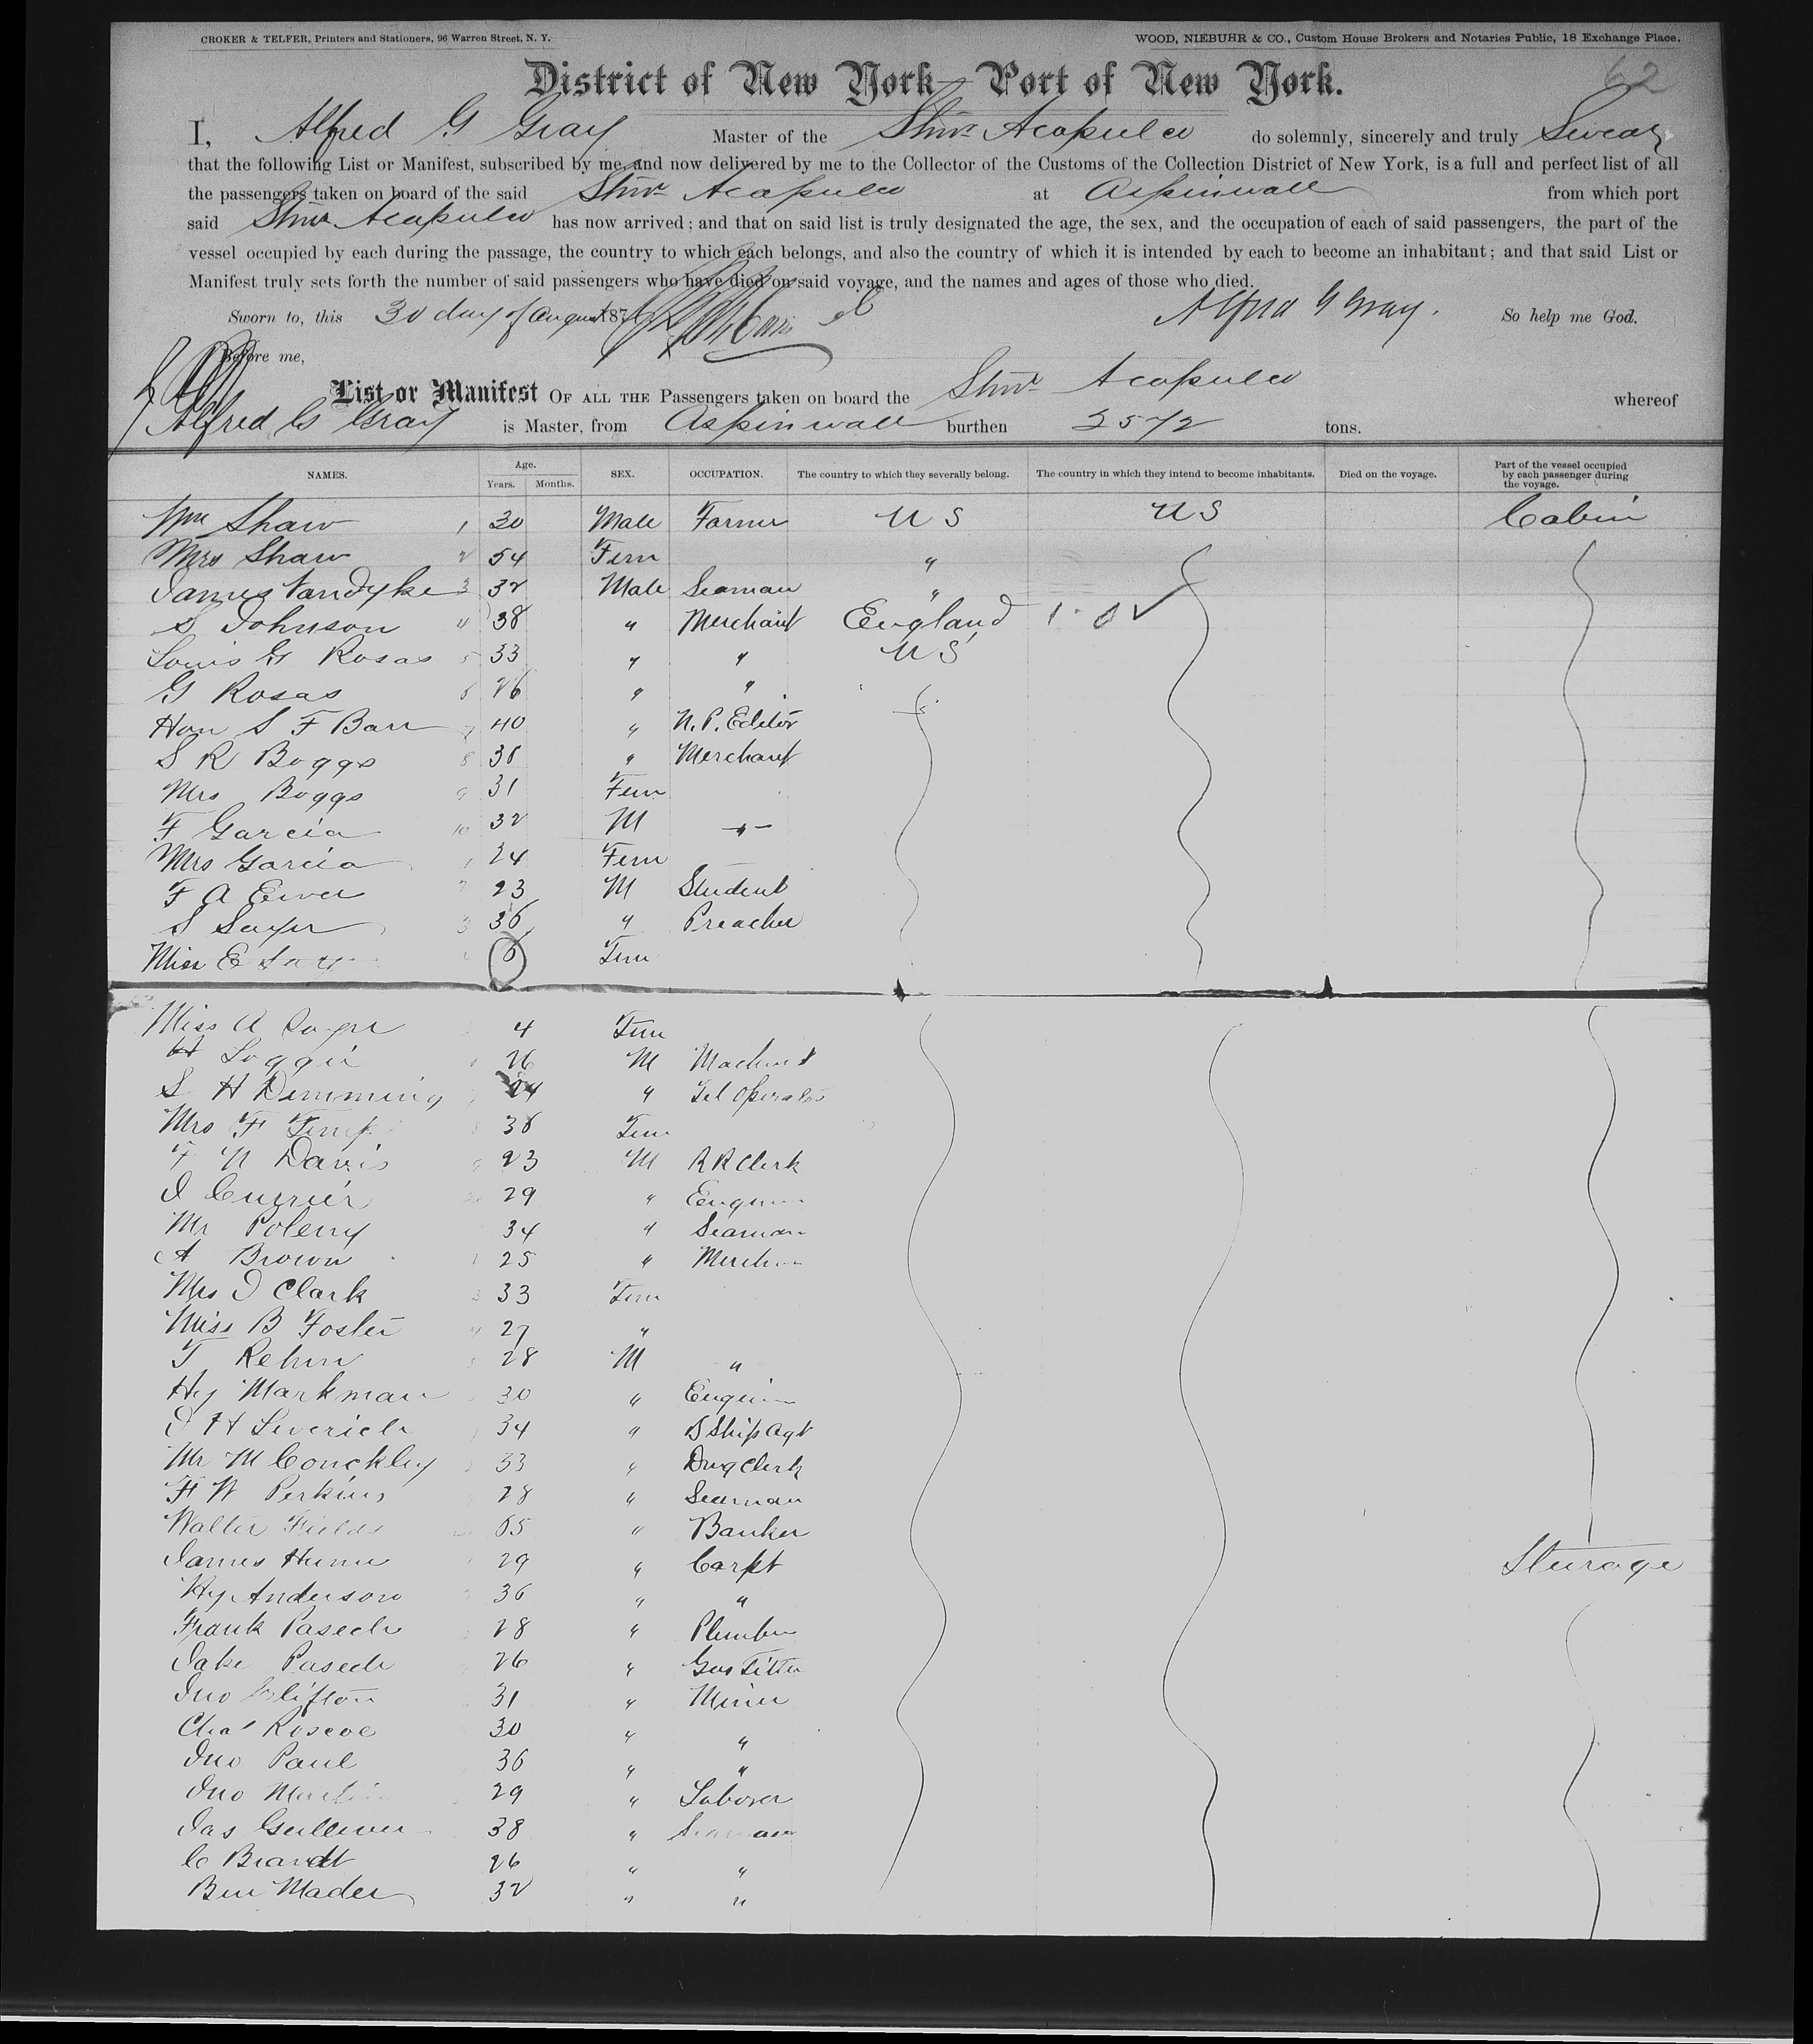 CROKER & TELFER, Printers and Stationers, 96 Warren Street, N. Y. WOOD, NIEBUHR & CO., Custom House Brokers and Notaries Public, 18 Exchange Place.
62
District of New York—Port of New York.
I, Alfred G Gray Master of the Stmr Acapulco do solemnly, sincerely and truly Swear
that the following List or Manifest, subscribed by me, and now delivered by me to the Collector of the Customs of the Collection District of New York, is a full and perfect list of all
the passengers taken on board of the said Stmr Acapulco at Aspinwall from which port
said Stmr Acapulco has now arrived; and that on said list is truly designated the age, the sex, and the occupation of each of said passengers, the part of the
vessel occupied by each during the passage, the country to which each belongs, and also the country of which it is intended by each to become an inhabitant; and that said List or
Manifest truly sets forth the number of said passengers who have died on said voyage, and the names and ages of those who died.
Sworn to, this 30 day of August 187 Alfred G Gray. So help me God.
Before me,
List or Manifest OF ALL THE Passengers taken on board the Stmr Acapulco whereof
Alfred G Gray is Master, from Aspinwall burthen 2572 tons.
NAMES. Age. Years. Months. SEX. OCCUPATION. The country to which they severally belong. The country in which they intend to become inhabitants. Died on the voyage. Part of the vessel occupied by each passenger during the voyage.
Wm Shaw 1 30 Male Farmer U S U S Cabin
Mrs Shaw 2 54 Fem "
James Vandyke 3 32 Male Seaman "
S Johnson 4 38 " Merchant England
Louis G Rosas 5 33 " " U S
G Rosas 6 26 " "
Hon S F Barr 7 40 " N. P. Editor
S R Boggs 8 36 " Merchant
Mrs Boggs 9 31 Fem
F Garcia 10 32 M
Mrs Garcia 1 24 Fem
F A Ewer 2 23 M Student
S Sayer 3 36 " Preacher
Miss E 6 Fem
Miss A Sayer 4 Fem
H Loggie 26 M Machinist
S H Demming 24 " Tel Operator
Mrs F 38 Fem
F N Davis 9 23 M R R Clerk
J Currier 29 " Engineer
Mr Polemy 34 " Seaman
A Brown 25 " Merchant
Mrs J Clark 3 33 Fem
Miss B Foster 4 27 "
T Rehm 28 M "
Hy Markman 30 " Engineer
J H Leverich 34 " S Ship Agt
Mr M Conckley 33 " Drug Clerk
F W Perkins 28 " Seaman
Walter Fields 65 " Banker
James Hume 29 " Carpt Sturage
Hy Anderson 36 " "
Frank Pasech 28 " Plumber
Jake Pasech 26 " Gas Fitter
Jno Clifton 31 " Miner
Chas Roscoe 30 " "
Jno Paul 36 " "
Jno Martin 29 " Laborer
Jas Gulliver 38 " Seaman
C Brandt 26 " "
Ben Mader 32 " "